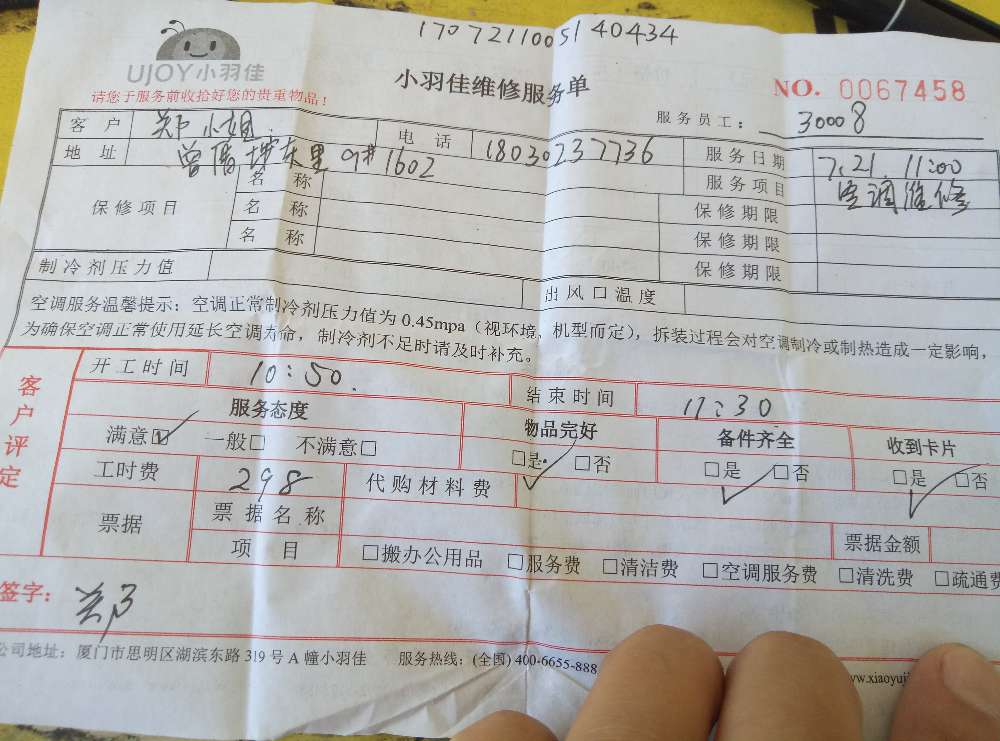 17072110051 40434
UJOY小羽佳
请您于服务前收拾好您的贵重物品！
小羽佳维修服务单
NO. 0067458
服务员工： 30008
客户 郑小姐 电话 18030237736 服务日期 7.21 11:00
地址 曾厝垵东里9#1602 服务项目 空调维修
保修项目 名称 保修期限
名称 保修期限
名称 保修期限
制冷剂压力值 出风口温度
空调服务温馨提示：空调正常制冷剂压力值为 0.45mpa（视环境、机型而定），拆装过程会对空调制冷或制热造成一定影响，
为确保空调正常使用延长空调寿命，制冷剂不足时请及时补充。
客户评定
开工时间 10:50. 结束时间 11:30
服务态度 物品完好 备件齐全 收到卡片
满意☑ 一般□ 不满意□ □是 □否 □是 □否 □是 □否
工时费 298 代购材料费
票据 票据名称 票据金额
项目 □搬办公用品 □服务费 □清洁费 □空调服务费 □清洗费 □疏通费
签字： 郑
公司地址：厦门市思明区湖滨东路 319 号 A 幢小羽佳 服务热线：(全国) 400-6655-888
www.xiaoyuj